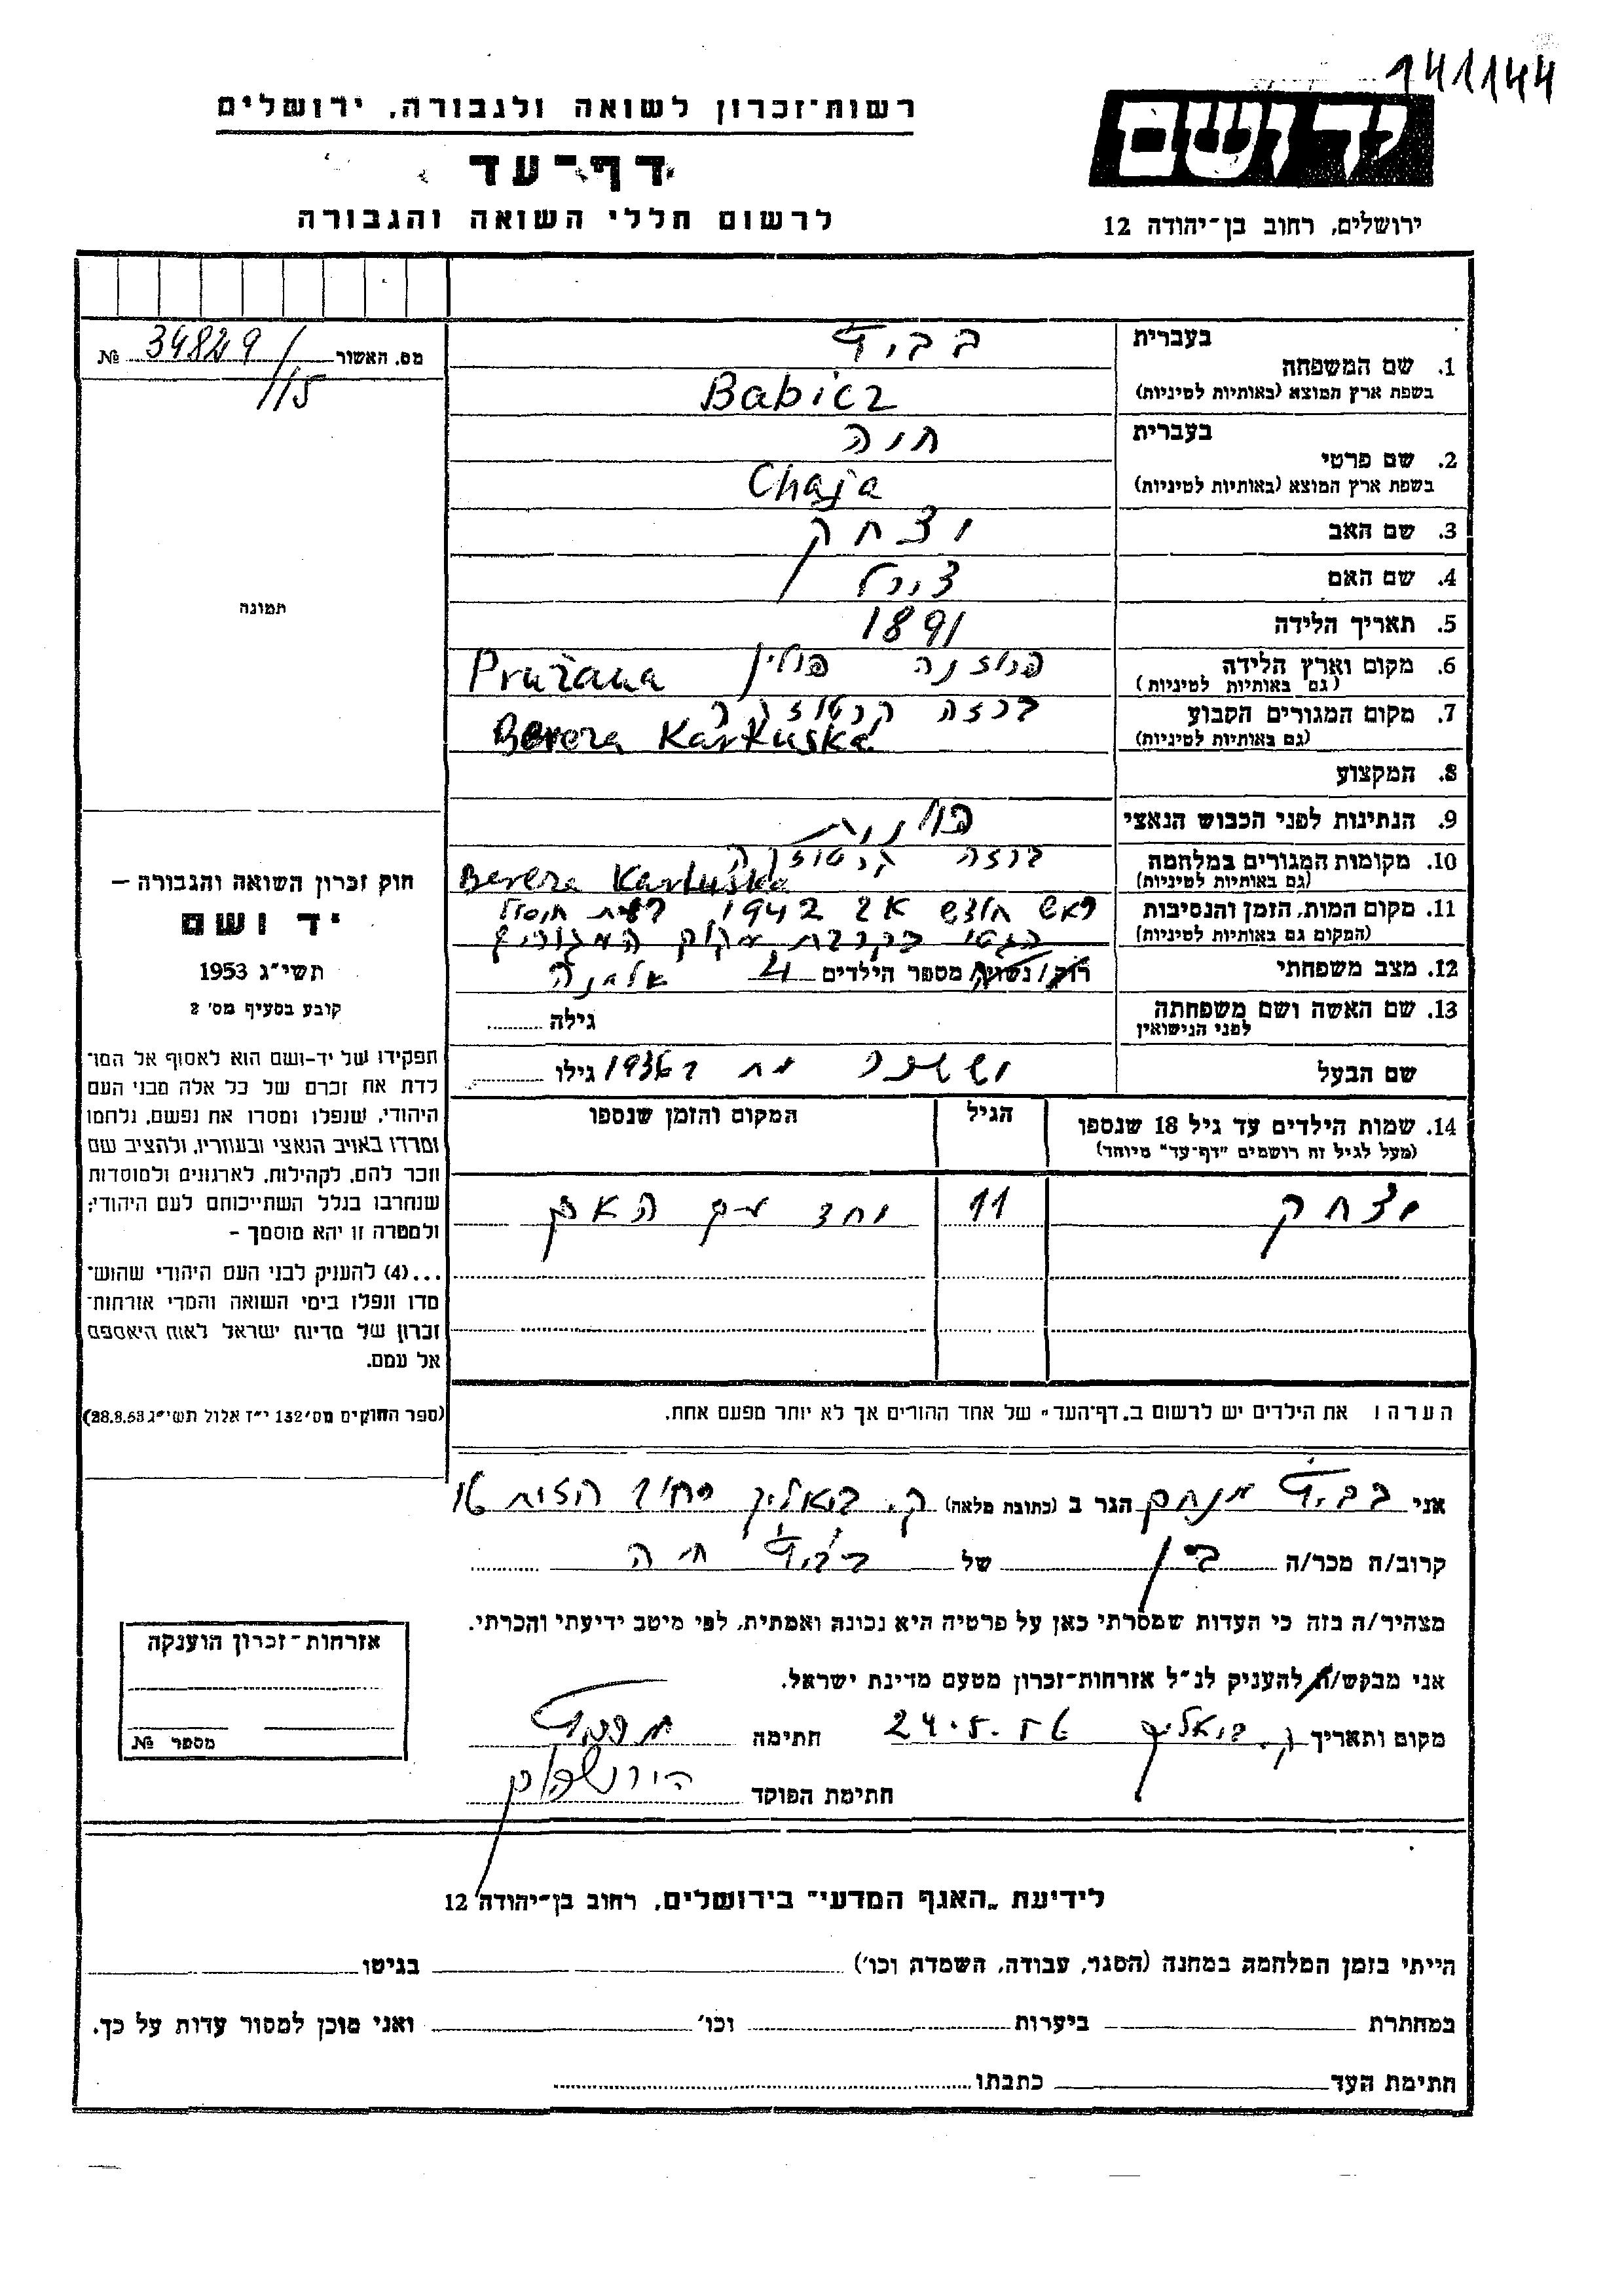 141144
רשות־זכרון לשואה ולגבורה, ירושלים
דף־עד
לרשום חללי השואה והגבורה
יד ושם
ירושלים, רחוב בן־יהודה 12
מס. האשור 34829/ №
115
תמונה
חוק זכרון השואה והגבורה –
יד ושם
תשי"ג 1953
קובע בסעיף מס' 2
תפקידו של יד-ושם הוא לאסוף אל המו־
לדת את זכרם של כל אלה מבני העם
היהודי, שנפלו ומסרו את נפשם, נלחמו
ומרדו באויב הנאצי ובעוזריו, ולהציב שם
וזכר להם, לקהילות, לארגונים ולמוסדות
שנחרבו בגלל השתייכותם לעם היהודי;
ולמטרה זו יהא מוסמך –
...(4) להעניק לבני העם היהודי שהוש־
מדו ונפלו בימי השואה והמרי אזרחות־
זכרון של מדינת ישראל לאות היאספם
אל עמם.
(ספר החוקים מס' 132 י"ז אלול תשי"ג 28.8.53)
בעברית
1. שם המשפחה
בשפת ארץ המוצא (באותיות לטיניות)
בביץ
Babicz
בעברית
2. שם פרטי
בשפת ארץ המוצא (באותיות לטיניות)
חיה
Chaja
3. שם האב יצחק
4. שם האם
5. תאריך הלידה 1891
6. מקום וארץ הלידה
(גם באותיות לטיניות)
פרוזנה פולין Prużana
7. מקום המגורים הקבוע
(גם באותיות לטיניות)
ברזה קרטוזקה
Bereza Kartuska
8. המקצוע
9. הנתינות לפני הכבוש הנאצי פולנית
10. מקומות המגורים במלחמה
(גם באותיות לטיניות)
ברזה קרטוזקה
Bereza Kartuska
11. מקום המות, הזמן והנסיבות
(המקום גם באותיות לטיניות)
ראש חודש אב 1942 בעת חוסול
הגטו בקרבת מקום המגורים
12. מצב משפחתי רוק/נשוי/ מספר הילדים 4 אלמנה
13. שם האשה ושם משפחתה
לפני הנישואין
גילה
שם הבעל מת ב 1936 גילו
14. שמות הילדים עד גיל 18 שנספו
(מעל לגיל זה רושמים "דף-עד" מיוחד)
הגיל
המקום והזמן שנספו
יצחק 11 יחד עם האם
הערה: את הילדים יש לרשום ב"דף-העד" של אחד ההורים אך לא יותר מפעם אחת.
אני בביץ מנחם הגר ב (כתובת מלאה) ק. ביאליק רחוב הזית 16
קרוב/ה מכר/ה בן של בביץ חיה
מצהיר/ה בזה כי העדות שמסרתי כאן על פרטיה היא נכונה ואמתית, לפי מיטב ידיעתי והכרתי.
אני מבקש/ת להעניק לנ"ל אזרחות־זכרון מטעם מדינת ישראל.
מקום ותאריך ק. ביאליק 24.5.56 חתימה
חתימת הפוקד
אזרחות־זכרון הוענקה
מספר №
לידיעת "האגף המדעי" בירושלים, רחוב בן־יהודה 12
הייתי בזמן המלחמה במחנה (הסגר, עבודה, השמדה וכו') בגיטו
במחתרת ביערות וכו' ואני מוכן למסור עדות על כך.
חתימת העד כתבתו